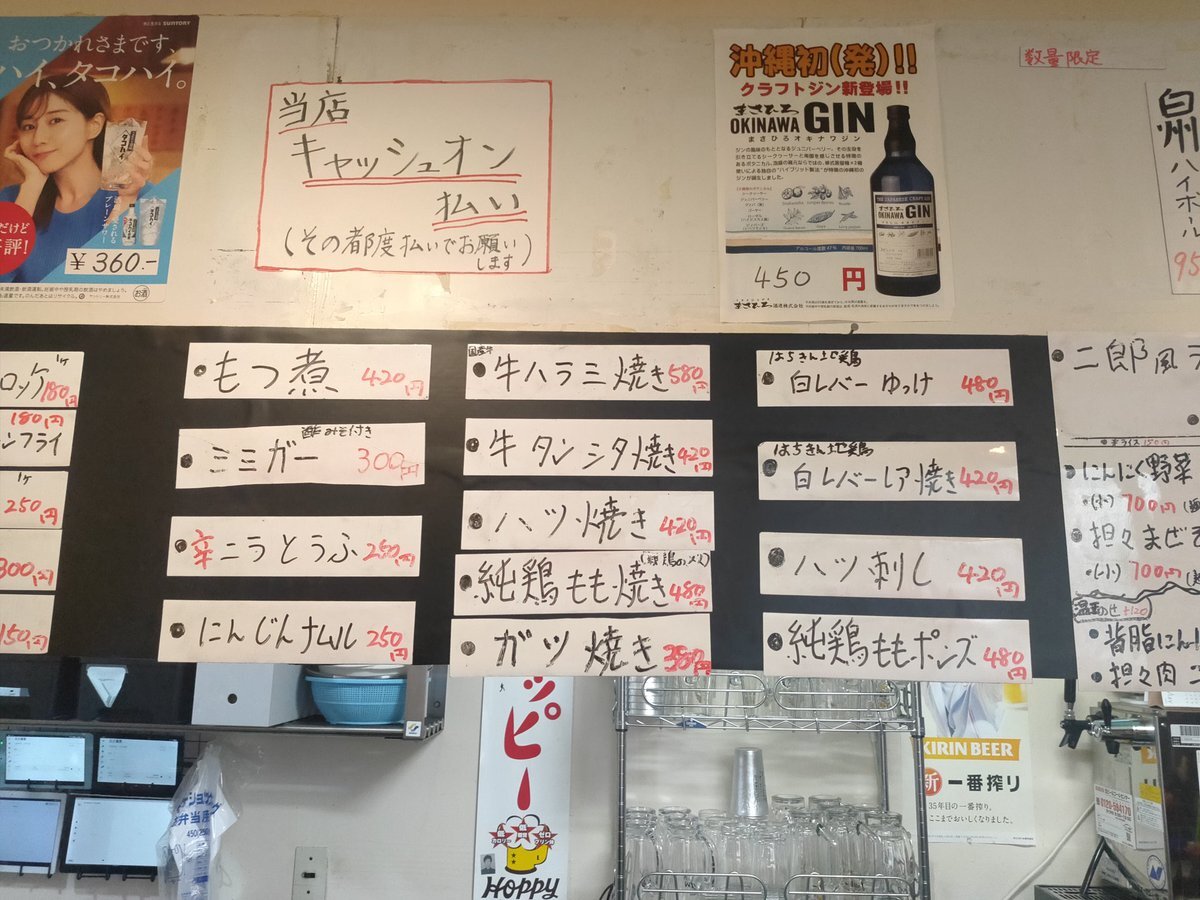 SUNTORY
おつかれさまです、
ハイ、タコハイ。
プレーンサワー
¥360.-
お酒
当店
キャッシュオン
払い
(その都度払いでお願い
します)
沖縄初(発)!!
クラフトジン新登場!!
まさひろ
OKINAWA GIN
まさひろオキナワジン
アルコール度数47%
450円
まさひろ酒造株式会社
数量限定
白州ハイボール
95
ロッケ
180円
180円
ンフライ
250円
300円
150円
もつ煮 420円
酢みそ付き
ミミガー 300円
辛ニラとうふ 250円
にんじんナムル 250円
国産牛
牛ハラミ焼き 580円
牛タンシタ焼き 420円
ハツ焼き 420円
純鶏もも焼き 480円
ガツ焼き 350円
はちきん地鶏
白レバーゆっけ 480円
はちきん地鶏
白レバーレア焼き 420円
ハツ刺し 420円
純鶏ももポンズ 480円
二郎風
半ライス150円
にんにく野菜
(小)700円
担々まぜそ
(小)700円
+120
背脂にん
担々肉
ッピー
HOPPY
KIRIN BEER
新 一番搾り
35年目の一番搾り。
ここまでおいしくなりました。
0120-984170